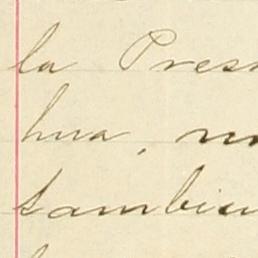 la Pres
hua, m
tambien